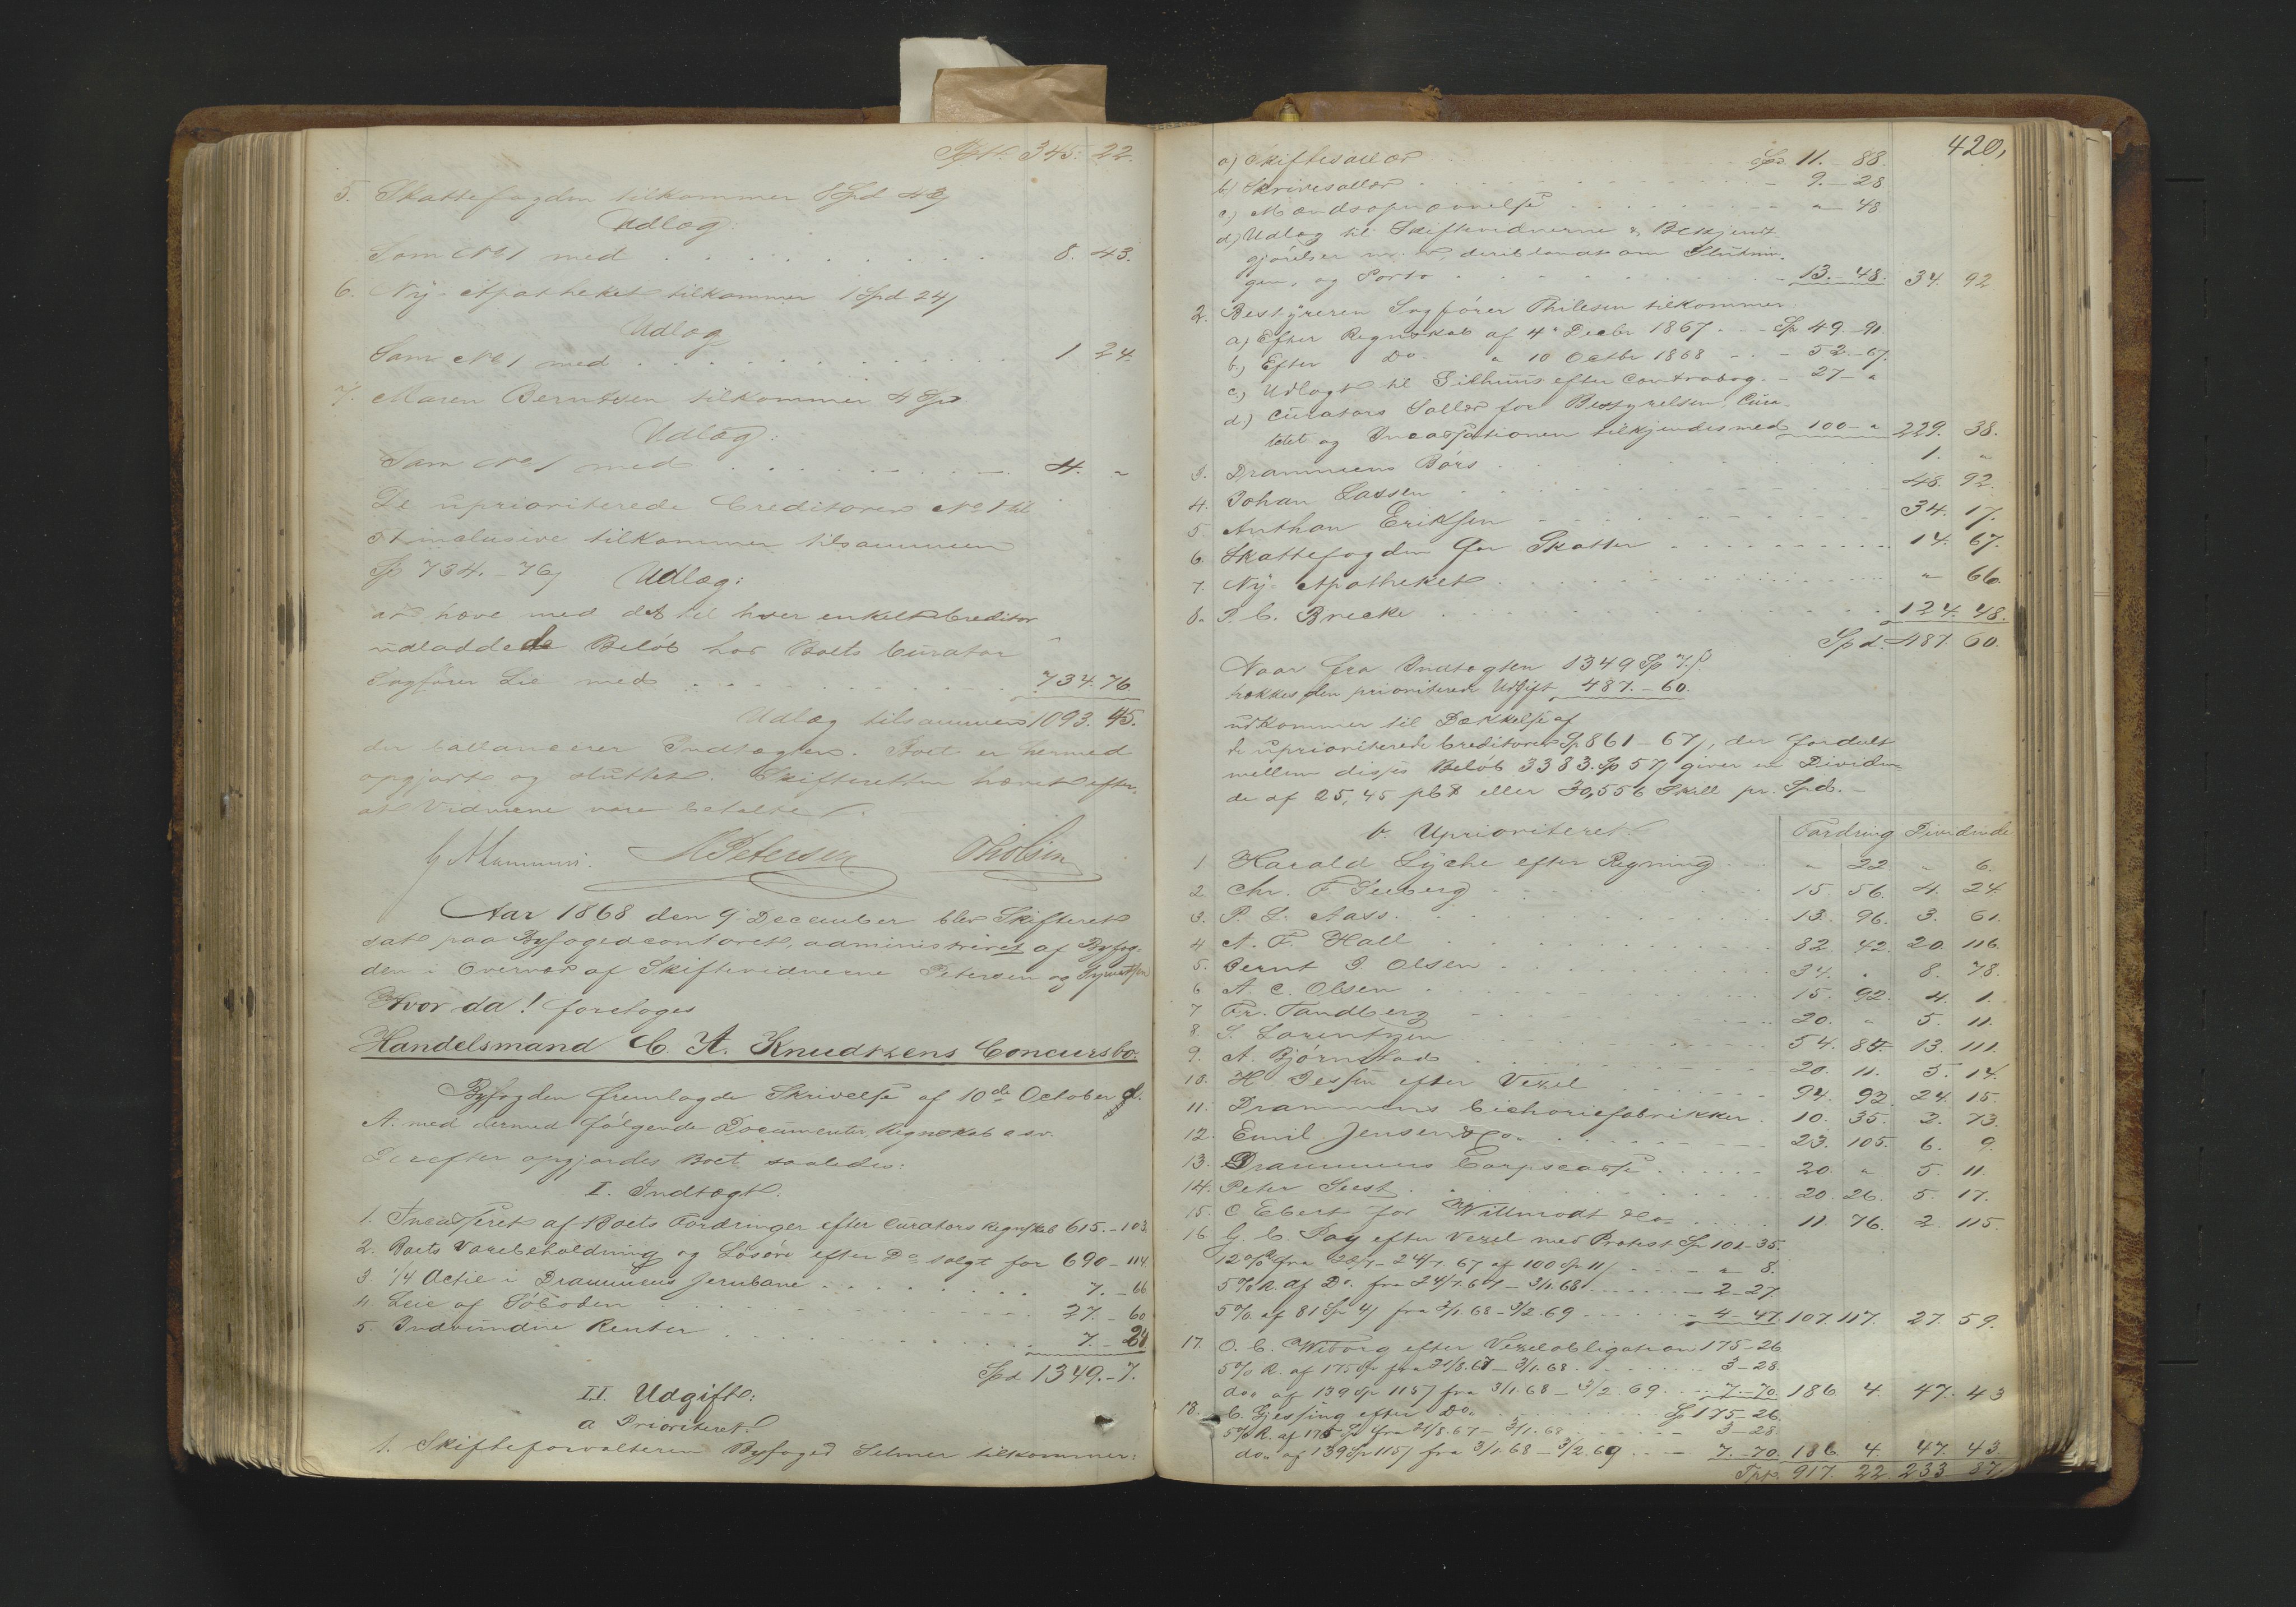 Tpt. 345. 22.
5. Skattefogden tilkommer 8 Spd 43ß
Udlæg:
Som No 1 med . . . 8. 43.
6. Ny-Apotheket tilkommer 1 Spd 24ß
Udlæg
Som No 1 med . . . 1 24.
7. Maren Berntsen tilkommer 4 Spd
Udlæg:
Som No 1 med . . . 4. "
De uprioriterede Creditorer No 1 til
51 inclusive tilkommer tilsammen
Sp 734.-76ß Udlæg:
at hæve med det til hver enkelt Creditor
udlodde de Beløb hos Boets Curator
Sagfører Lie med . . . 734. 76
Udlæg tilsammen 1093. 45.
der ballancerer Indtægten. Boet er hermed
opgjort og sluttet. Skifteretten hævet efter
at Vidnerne vare betalte.
HPetersen
Aar 1868 den 9 December blev Skifteret
sat paa Byfogedcontoret, administreret af Byfog-
den i Overvær af Skiftevidnerne Petersen og
Hvor da! foretoges
Handelsmand C. A. Knudtzens Concursbo.
Byfogden fremlagde Skrivelse af 10de October d.
A. med dermed følgende Documenter, Regnskab osv.
Derefter opgjordes Boet saaledes:
I. Indtægt.
1. Incasseret af Boets Fordringer efter Curators Regnskab 615.-103.
2. Boets Varebeholdning og Løsøre efter Do solgt for 690-114
3. 1/4 Actie i Drammens Jernbane . . . 7.-66
4 Leie af Søboden . . . 27.-60
5. Indvundne Renter . . . 7.-24
Spd 1349.-7.
II Udgift:
a Prioriteret.
1. Skifteforvalteren Byfoged Selmer tilkommer:
420,
a) Skiftesallær . . . Spd. 11. 88.
b) Skriversallær . . . - 9.-28
c.) Mændsopnævnelse . . . "-48
d) Udlæg til Skiftevidnerne & Bekjendt-
gjørelser m. v. deriblandt om Slutnin-
gen, og Porto . . . -13.-48. 34. 92
2. Bestyreren Sagfører Thilesen tilkommer
a) Efter Regnskab af 4 Decbr 1867 . . . Sp 49.-91
b.) Efter Do. " 10 Octbr 1868 - - 52.-67.
c,) Udlagt til Gilhuus efter Contrabog. - 27-"
d.) Curators Sallær for Bestyrelsen, Cura-
telet og Incassationen tilkjendes med 100-" 229. 38.
3. Drammens Børs . . . 1. "
4. Johan Lassen . . . 48. 92.
5 Anthon Eriksen . . . 34. 17.
6. Skattefogden for Skatter . . . 14. 67.
7. Ny-Apotheket . . . " 66
8. P. C. Brecke . . . 124. 48.
Spd. 487. 60.
Naar fra Indtægten 1349 Sp 7ß.
trækkes den prioriterede Udgift 487.-60.
udkommer til Dækkelse af
de uprioriterede Creditorer Sp 861-67ß, der fordelt
mellem disses Beløb 3383. Sp 57ß giver en Dividen-
de af 25,45 pCt eller 30,556 Skill pr. Spd. -
b. Uprioriteret. Fordring Dividende
1 Harald Lyche efter Regning . . . " 22 " 6.
2 Chr. F Seeberg . . . 15. 56. 4. 24
3. P. L. Aass . . . 13. 96. 3. 61.
4 A. F. Hall . . . 82. 42. 20. 116
5. Bernt J Olsen . . . 34. " 8. 78.
6 A. C. Olsen . . . 15. 92. 4. 1.
7 Fr. Tandberg . . . 20. " 5. 11.
8. S. Lorentzen . . . 54. 84. 13. 111.
9. A. Bjørnstad . . . 20. 11. 5. 14.
10. H Jessen efter Vexel . . . 94. 92. 24. 15.
11. Drammens Cichoriefabrikker . 10. 35. 2. 73.
12. Emil Jensen & Co. . . . 23. 105. 6. 9.
13. Drammens Corpscasse . . . 20. " 5. 11.
14. Peter Seest . . . 20. 26. 5. 17.
15. C Ebert for Willmodt & Co . . . 11. 76. 2. 115.
16 G. C. Pay efter Vexel med Protest Sp 101-35.
12% fra 22/7-24/7. 67 af 100 Sp 11ß . . . " 8.
5% R. af Do. fra 24/7.67-3/1.68 . . . 2-27.
5% af 81 Sp 4ß fra 3/1.68-3/2.69 . . . 4-47. 107. 117. 27. 59.
17. O. C. Wiborg efter Vexelobligation 175-26
5% R. af 175 Sp fra 21/8.67-3/1.68 . . . 3-28
do. af 139 Sp 115ß fra 3/1.68-3/2.69 . . . 7.-70. 186. 4. 47. 43
18. C. Gjessing efter Do. . . . Sp 175-26.
5% R. af 175 Sp fra 21/8.67-3/1.68 . . . 3-28
do. af 139 Sp 115ß fra 3/1.68-3/2.69 . . . 7.-70. 186. 4. 47. 43.
Tpt. 917. 22 233. 87.